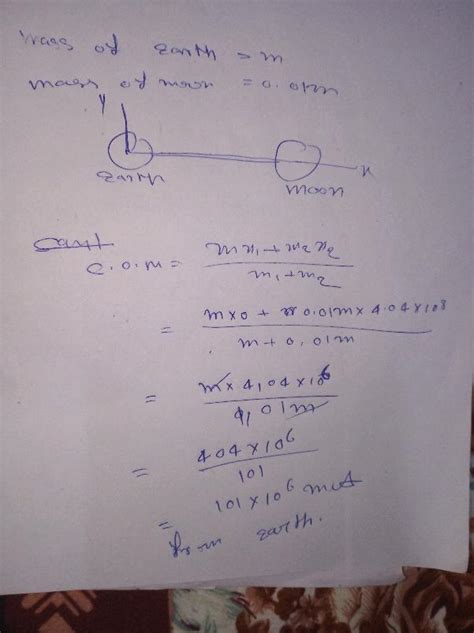 mass of Earth = m
mass of moon = 0.01m
y
x
Earth
moon
C.O.M = m₁x₁ + m₂x₂ / m₁ + m₂
= m×0 + 0.01m × 4.04×10⁸ / m + 0.01m
= m × 4.04×10⁶ / 1.01m
= 404×10⁶ / 101
= 101×10⁶
from earth.